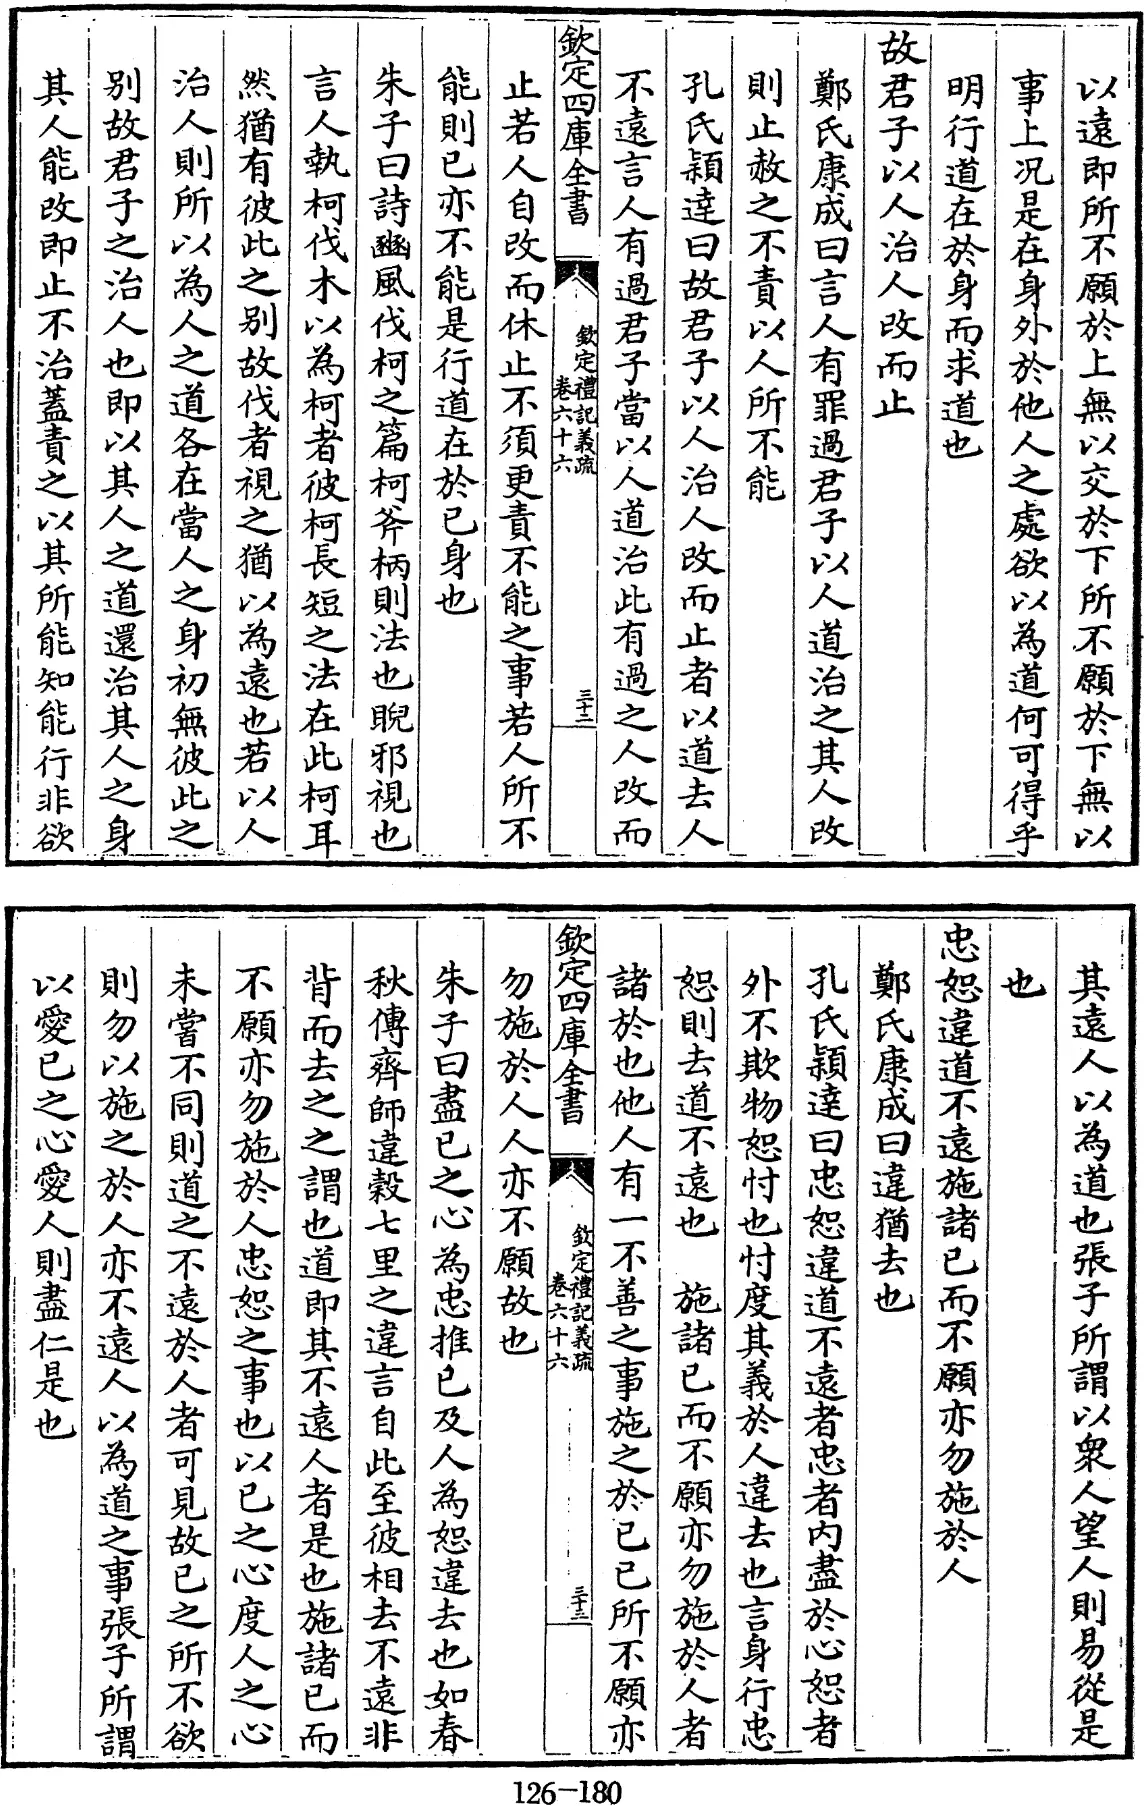 以遠即所不願於上無以交於下所不願於下無以
事上况是在身外於他人之處欲以為道何可得乎
明行道在於身而求道也
故君子以人治人改而止
鄭氏康成曰言人有罪過君子以人道治之其人改
則止赦之不責以人所不能
孔氏穎達曰故君子以人治人改而止者以道去人
不遠言人有過君子當以人道治此有過之人改而
欽定四庫全書
欽定禮記義疏
卷六十六
三十二
止若人自改而休止不須更責不能之事若人所不
能則已亦不能是行道在於已身也
朱子曰詩豳風伐柯之篇柯斧柄則法也睨邪視也
言人執柯伐木以為柯者彼柯長短之法在此柯耳
然猶有彼此之别故伐者視之猶以為遠也若以人
治人則所以為人之道各在當人之身初無彼此之
别故君子之治人也即以其人之道還治其人之身
其人能改即止不治蓋責之以其所能知能行非欲
其遠人以為道也張子所謂以衆人望人則易從是
也
忠恕違道不遠施諸已而不願亦勿施於人
鄭氏康成曰違猶去也
孔氏穎達曰忠恕違道不遠者忠者内盡於心恕者
外不欺物恕忖也忖度其義於人違去也言身行忠
恕則去道不遠也　施諸已而不願亦勿施於人者
諸於也他人有一不善之事施之於已已所不願亦
欽定四庫全書
欽定禮記義疏
卷六十六
三十三
勿施於人人亦不願故也
朱子曰盡已之心為忠推已及人為恕違去也如春
秋傳齊師違穀七里之違言自此至彼相去不遠非
背而去之之謂也道即其不遠人者是也施諸已而
不願亦勿施於人忠恕之事也以已之心度人之心
未嘗不同則道之不遠於人者可見故已之所不欲
則勿以施之於人亦不遠人以為道之事張子所謂
以愛已之心愛人則盡仁是也
126-180